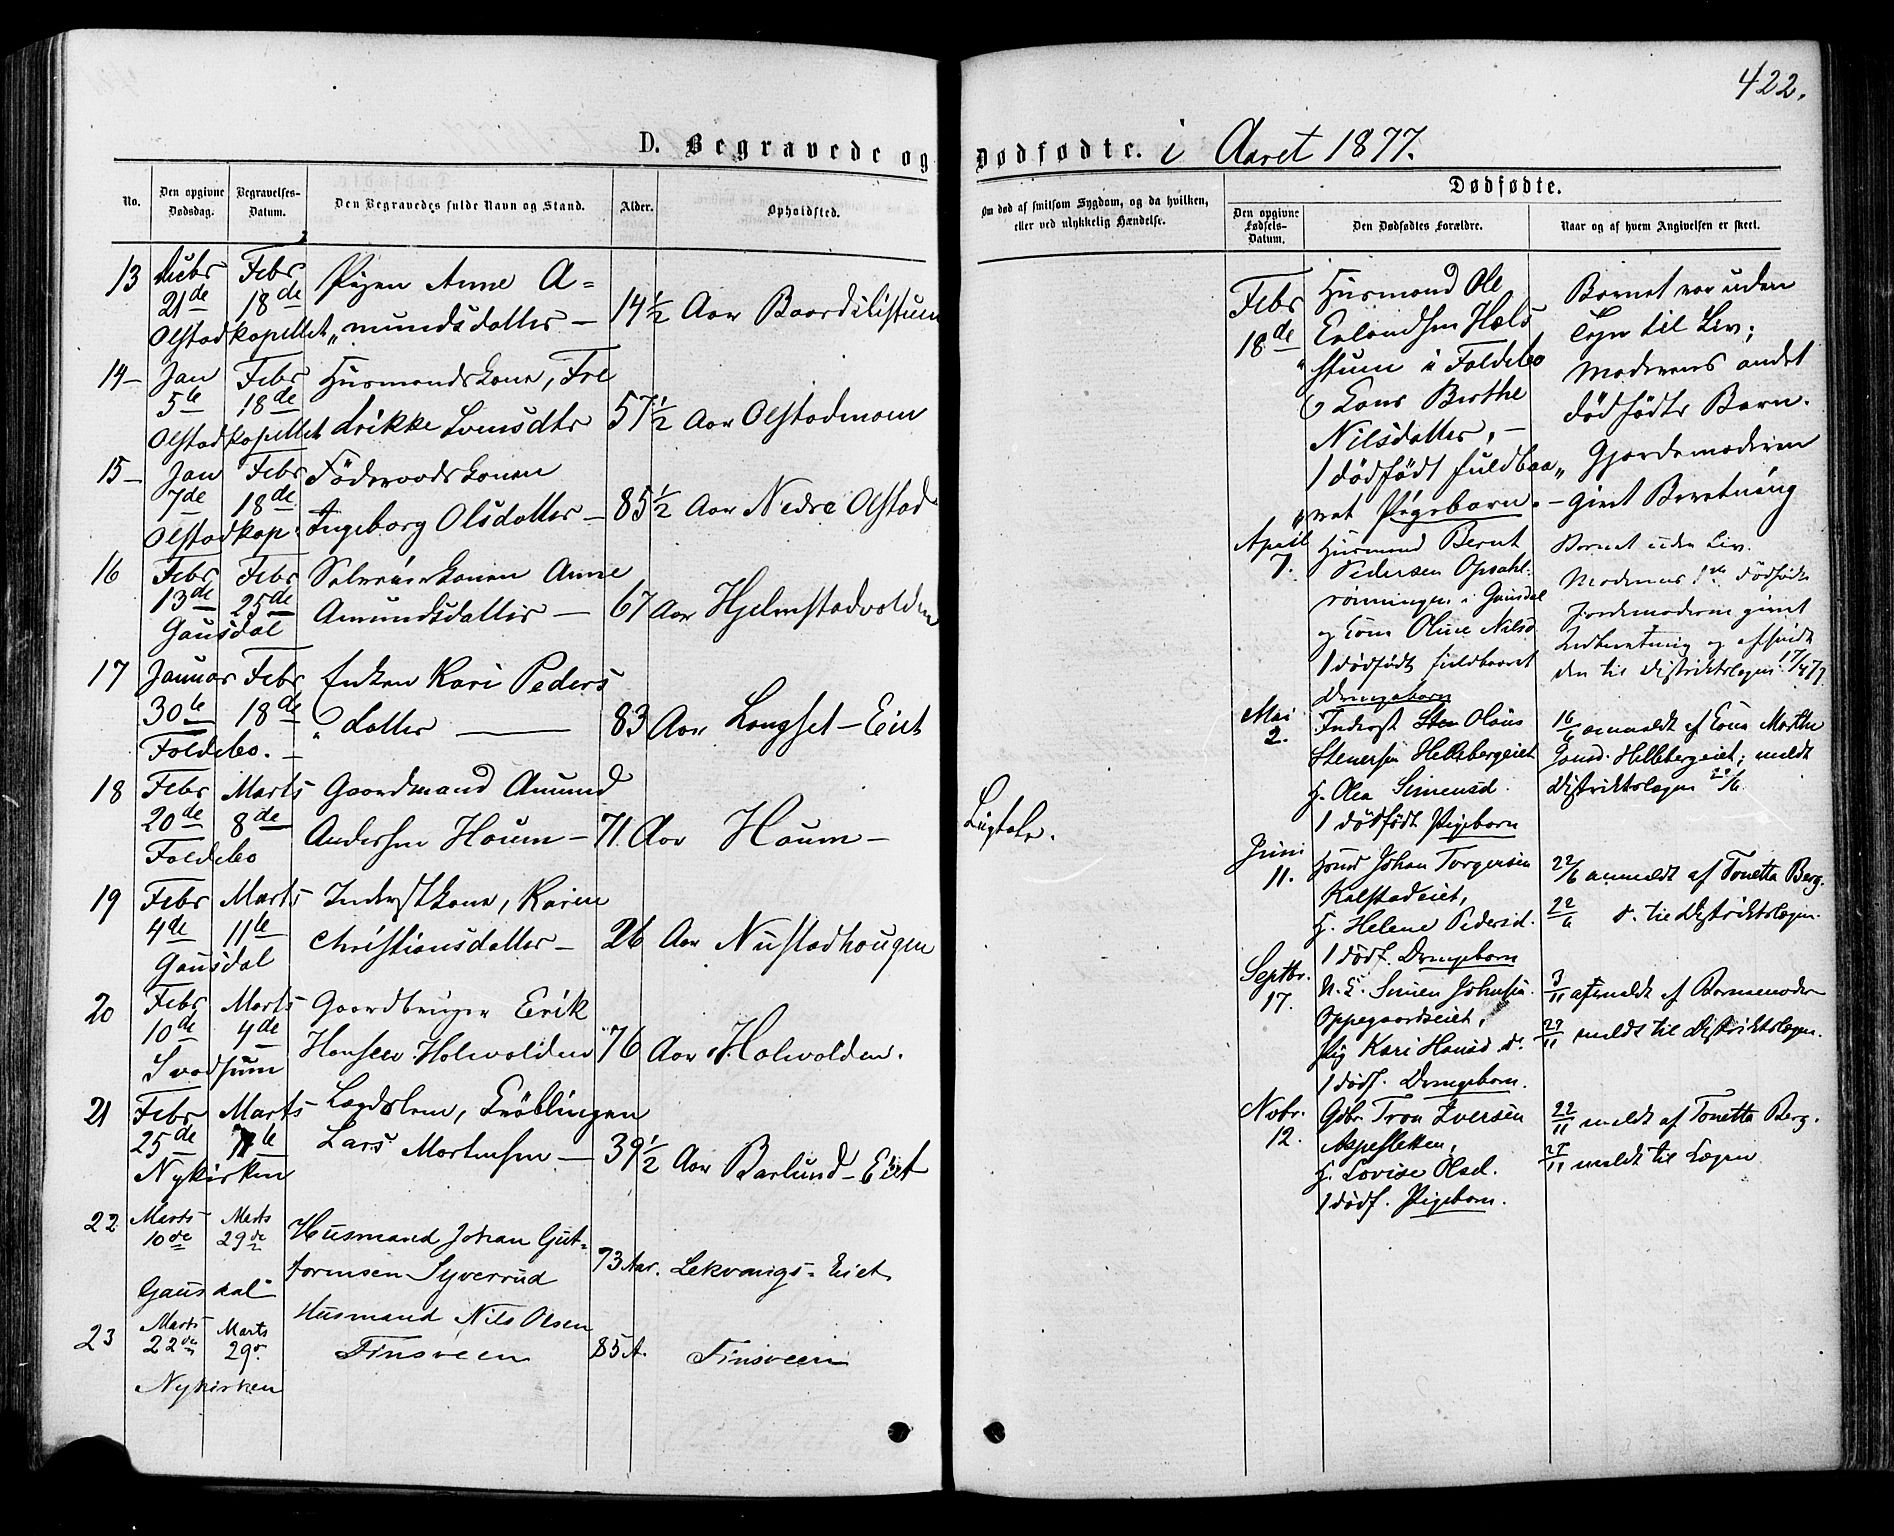 422.
D. Begravede og Dødfødte. i Aaret 1877.
No.
Den opgivne Dødsdag.
Begravelses-Datum.
Den Begravedes fulde Navn og Stand.
Alder.
Opholdsted.
Om død af smitsom Sygdom, og da hvilken, eller ved ulykkelig Hændelse.
Dødfødte.
Den opgivne Fødsels-Datum.
Den Dødfødtes Forældre.
Naar og af hvem Angivelsen er skeet.
13 Febr Pigen Anne A=
21de 18de 14½ Aar
Olstadkapellet „mundsdatter —
14 — Jan Febr Husmandskone, Fre
5te 18de 57½ Aar Olstadmoen
Olstadkapellet drikke
15 — Jan Febr Føderaadskonen
7de 18de 85½ Aar Nedre Olstad
Olstadkap: Ingeborg Olsdatter —
16 Febr Febr Anne
13de 25de Amundsdatter — 67 Aar Hjelmstadvolden
Gausdal
17 Januar Febr Enken Kari Peders
30te 18de „ datter — 83 Aar Longset-Eiet
Foldebo. —
18 Febr Marts Gaardmand Amund
20de 8de Andersen Houm — 71. Aar Houm — Ligtale.
Foldebo
19 Febr Marts Inderstkone, Karen
4de 11te Christiansdatter — 26 Aar Nustadhougen
Gausdal
20 Febr Marts Gaardbruger Erik
10de 4de Hansen Holvolden 76 Aar Holvolden.
Svatsum
21 Febr Marts Lægdslem, Krøblingen
25de Lars Mortensen — 39½ Aar Barlund-Eiet
Nykirken
22 Marts Marts Husmand Johan Gut=
10de 29de tormsen Syverrud 73 Aar. Lekvangs=Eiet
Gausdal
23 Marts Marts Husmand Nils Olsen
22de 29de Finsveen 85 A. Finsveen
Nykirken
Febr 18de
Husmand Ole
Erlandsen Hols
stuen i Foldebo
og Kone Berthe
Nilsdatter, —
1 dødfødt fuldbaa„
„ret Pigebarn. —
Barnet var uden
Tegn til Liv;
Moderens andet
dødfødte Barn.
Gjordemoderen
givet Beretning
April 7.
Husmand Bernt
Pedersen Opsahl-
rønningen i Gausdal
og Kone Oline Nilsd
1 dødfødt fuldbaaret
Drengebarn
Barnet uden Liv.
Moderens 1ste dødfødte
Jordemoderen givet
Indberetning og afsendt
den til Distriktslægen 17/4 77
Mai 2.
Inderst Sten Olaus
Stenersen Hellebergeiet
H. Olea Simensd.
1 dødfødt Pigebarn
16/6 anmeldt af Kone Marthe
Hellebergeiet; meldt
Distriktslægen
Juni 11.
Johan Torgersen
Kalstadeiet,
H. Helene Pedersd.
1 dødf. Drengebarn
22/6 anmeldt af Tonetta Berg.
22/6 d. til Distriktslægen.
Septbr. 17.
U. K. Simen Johnsen
Oppegaardseiet,
Pig Kari Hansd.
1 dødf. Drengebarn.
3/11 af Barnemoder
meldt til Distriktslægen.
Novbr. 12.
Gdbr. Tron Iversen
Aspesletten,
H. Lovise Olsd.
1 dødf. Pigebarn.
22/11 meldt af Tonetta Berg.
meldt til Lægen